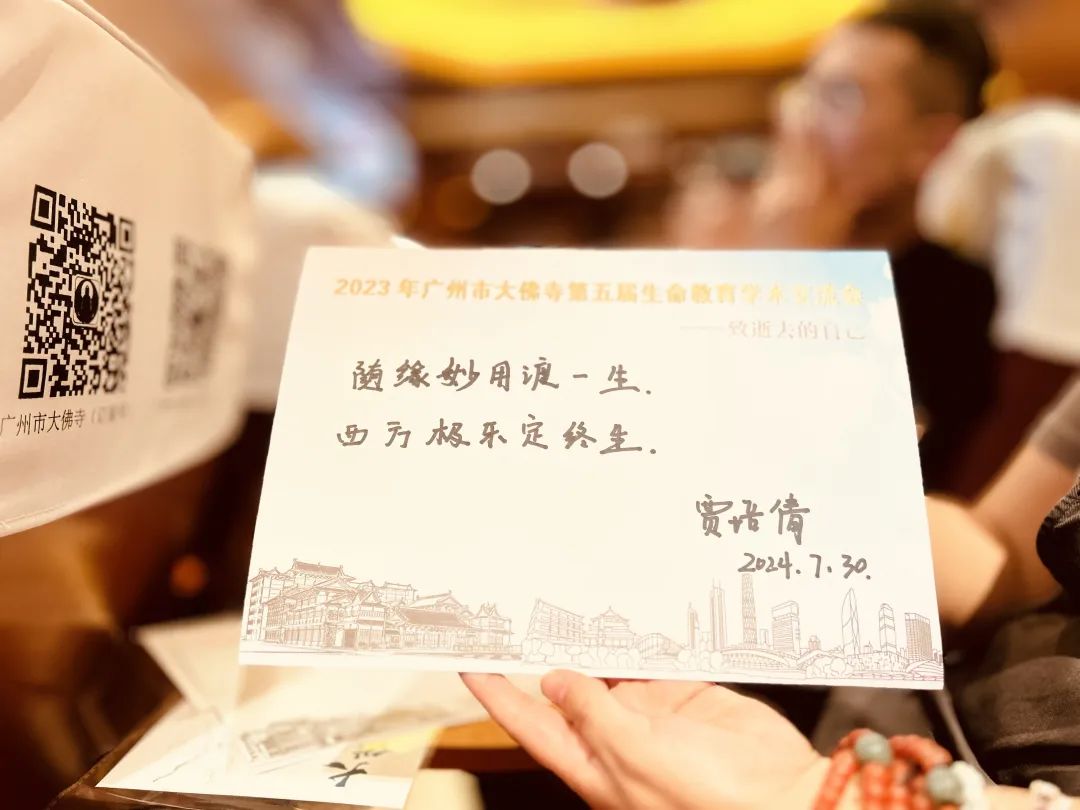 2023年广州市大佛寺第五届生命教育学术交流会
——致逝去的自己
随缘妙用渡一生.
西方极乐定终生.
贾培倩
2024.7.30.
广州市大佛寺
大